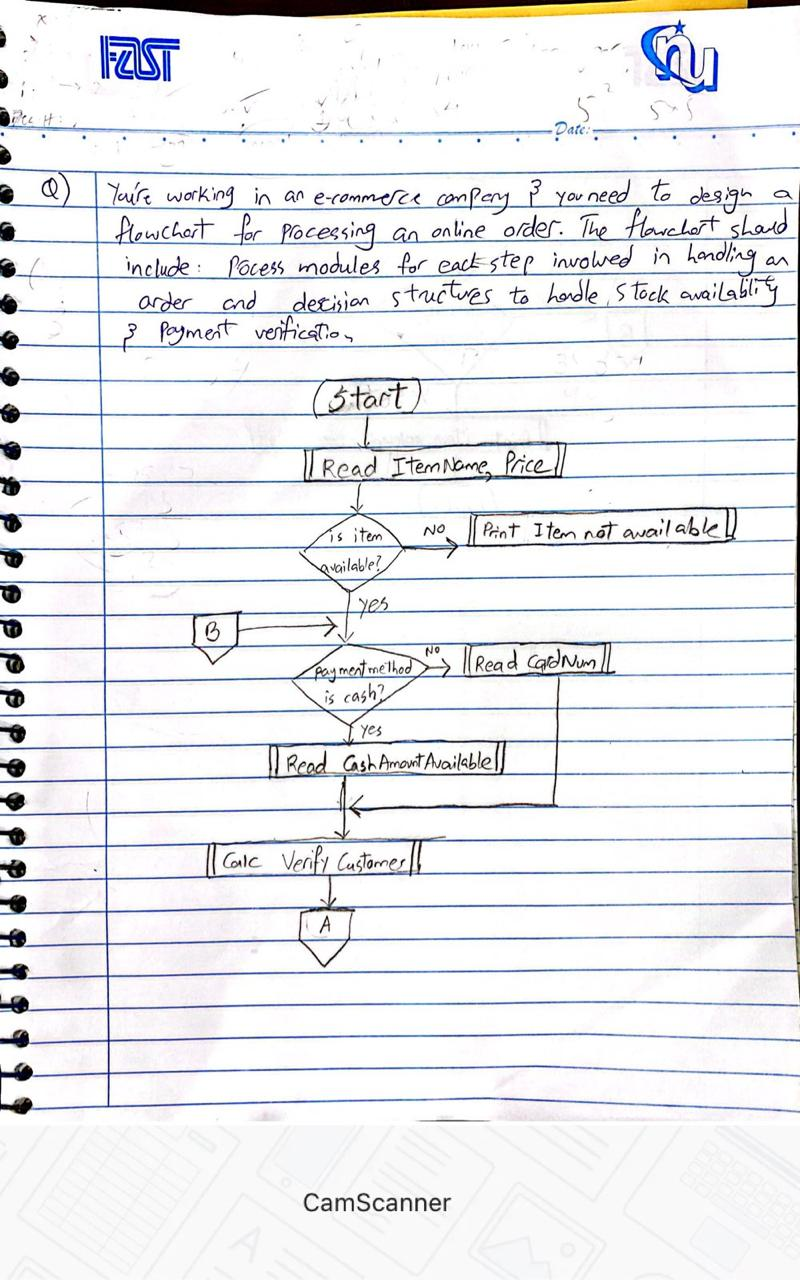 FAST
nu
Date:
Q) You're working in an e-commerce company & you need to design a
flowchart for processing an online order. The flowchart should
include: Pocess modules for each step involved in handling an
order and decision structures to handle stock availability
& Payment verification
Start
Read ItemName, Price
is item
available?
NO
Print Item not available
yes
B
payment method
is cash?
NO
Read CardNum
yes
Read CashAmountAvailable
Calc Verify Customer
A
CamScanner